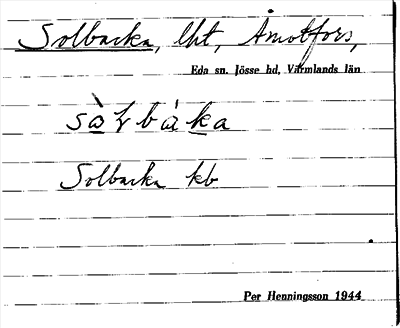 Solbacka, lht, Åmotfors,
Eda sn. Jösse hd, Värmlands län
sàɫbàka
Solbacka kb
Per Henningsson 1944